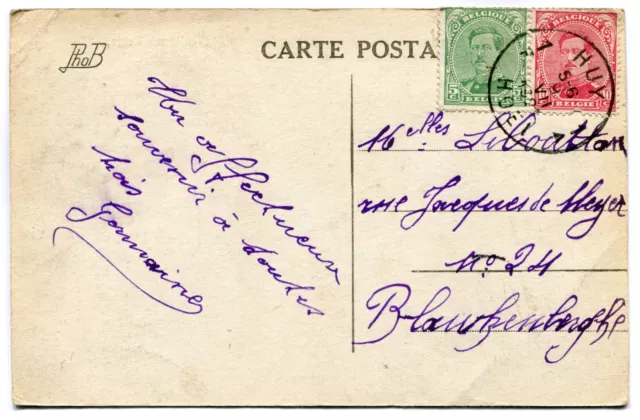 PhoB
CARTE POSTA
BELGIQUE
5c
BELGIË
BELGIQUE
10 c
BELGIË
HUY
1
5-6
VIII
HOEI
Un affectueux
souvenir à toutes
trois
Germaine
Melles Liboutton
rue Jacques de Meyer
No 24
Blankenberghe